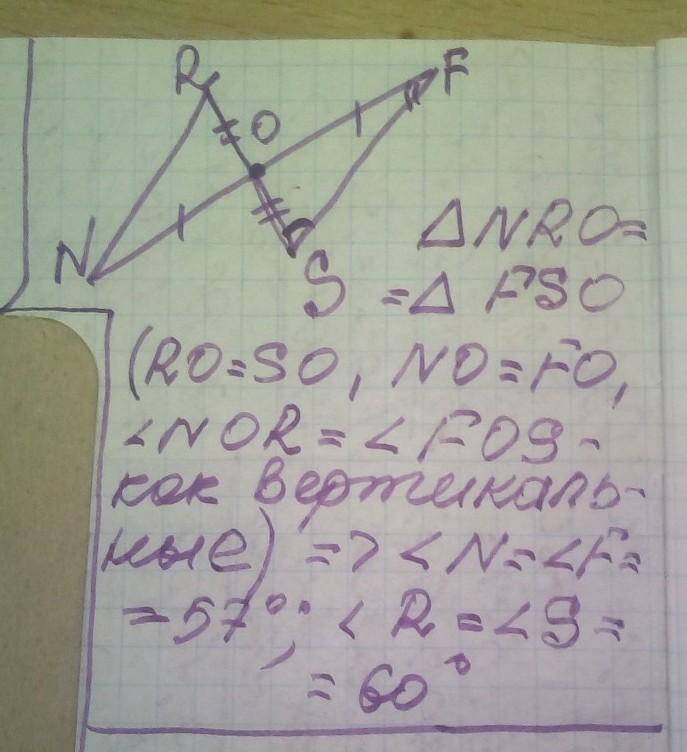 R
F
O
N
S
ΔNRO=
=Δ FSO
(RO=SO, NO=FO,
<NOR=<FOS-
как вертикаль-
ные) => <N=<F=
=57°; <R=<S=
=60°